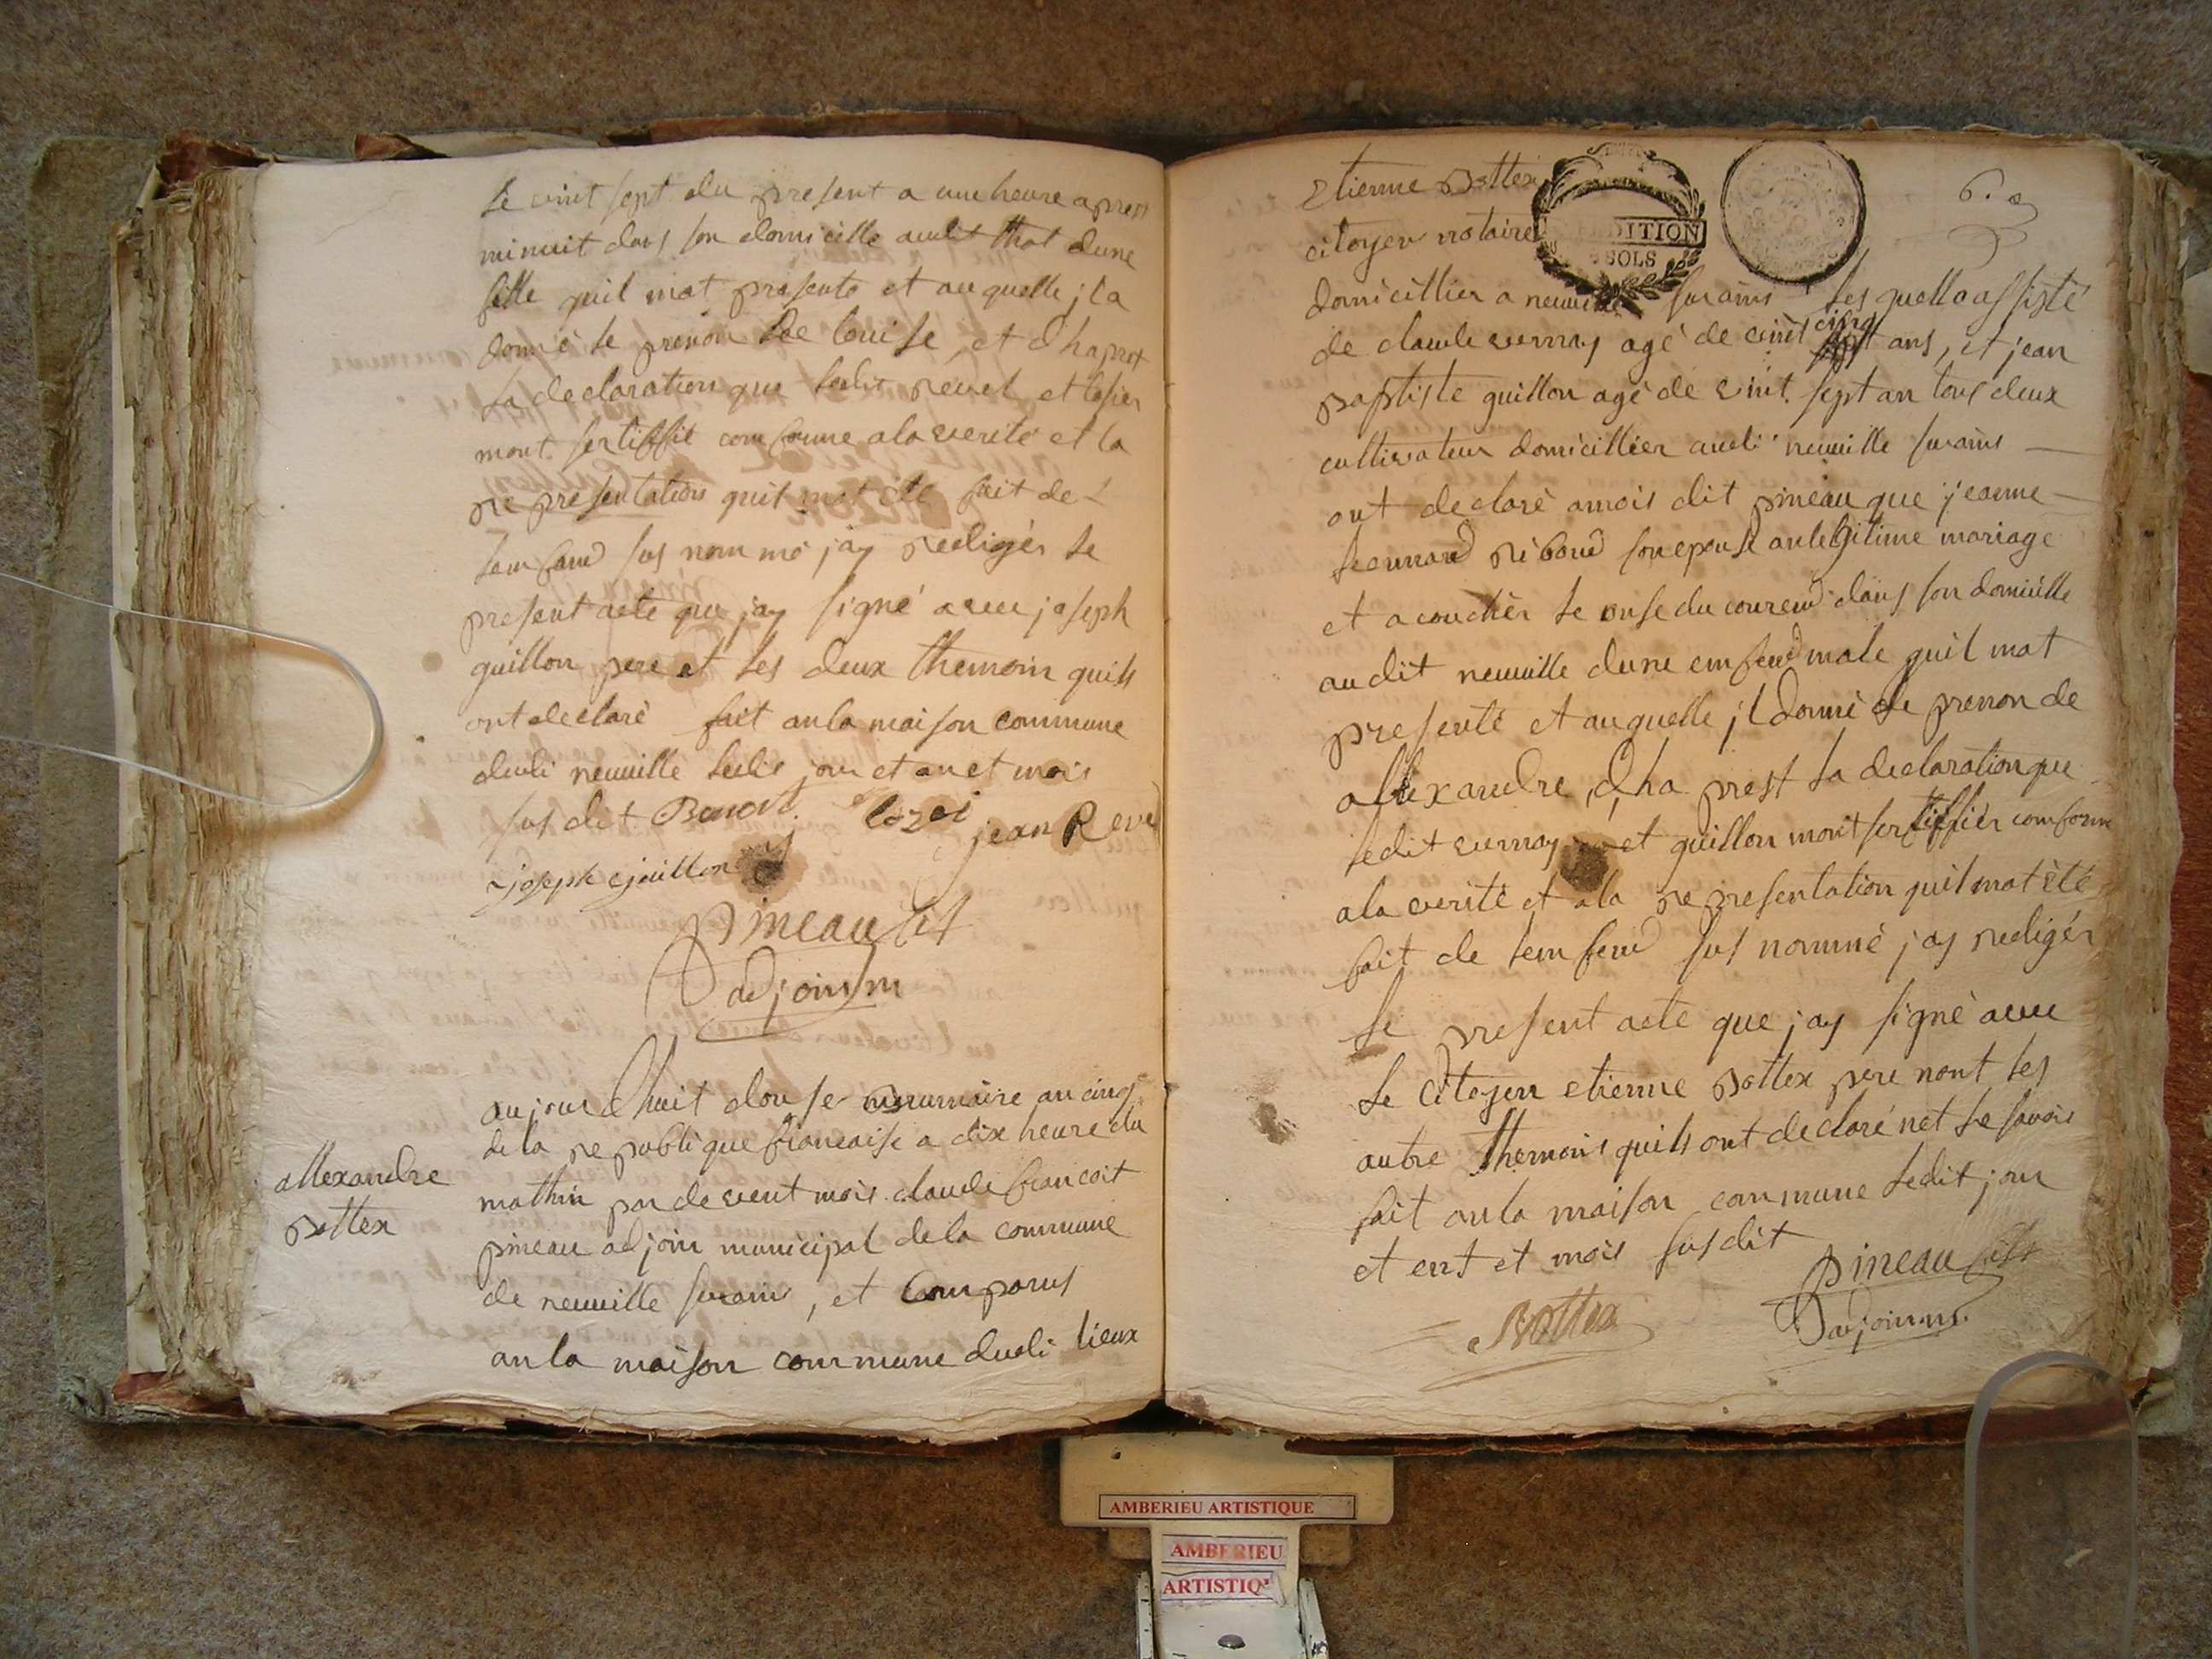 le vint sept du present a une heure aprest
minuit dans son domicille audit that dune
fille quil mat presente et auquelle jla
donné le prenon de louise, et dhaprest
la declaration que ledit revel et losier
mont sertiffié comforme ala verité et la
representation quil mat été fait de l
lemfand sus nommé jay redigér le
present acte que jay signé avec joseph
guillon pere et les deux themoin quils
ont declaré fait anla maison commune
dudi neuville ledit jour et an et mois
sus dit Benoit lozei jean Revel
joseph guillon
pineau fils
adjoint m
allexandre
bottex
aujourdhuit douse brumaire an cinq
de la republique francaise a dix heure du
mathin par devent mois claude francoit
pineau adjoin municipal dela commune
de neuville surain, et Comparus
anla maison commune dudi lieux
Etienne Bottex
citoyen notaire
DITION
SOLS
6.
domicillier a neuville surains lesquelle assisté
de claude vernay agé de vint cinq ans, et jean
baptiste guillon agé de vint sept an tous deux
cultivateur domicillier audi neuville surains
ont declaré amois dit pineau que jeanne
leonnard riboud son epouse anlegitime mariage
et acouchér le onse du courend dans son domicille
audit neuville dune emfend male quil mat
presenté et auquelle jl donné le prenon de
allexandre, dha prest la declaration que
ledit vernay et guillon mont sertiffiér comforme
ala verité et ala representation quil mat été
fait de lemfend sus nommé jay redigér
le present acte que jay signé avec
le Citoyen etienne bottex pere nont les
autre themoin quils ont declaré net le savoir
fait anla maison commune ledit jour
et ent et mois susdit pineau fils
Bottex adjoin m.
AMBERIEU ARTISTIQUE
AMBERIEU
ARTISTIQ